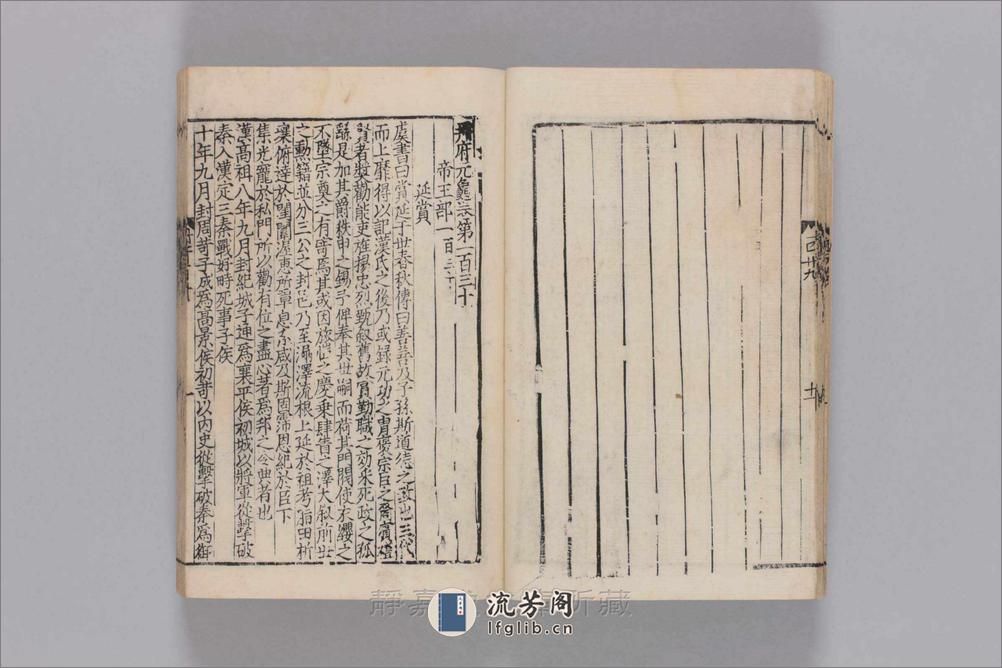 冊府元龜卷第一百三十
帝王部一百三十
延賞
虞書曰賞延于世春秋傳曰善善及子孫斯道德之 三代
而上靡得以記漢氏之後乃或録元功之胄襃宗臣之裔賞
賢者奬勸能吏旌揚忠烈甄叙舊故 勤職之効采死政之孤
繇是加其爵秩申之錫予俾奉其世嗣而荷其門閥使不纓之
不墜宗奠之有 焉其或因 之慶乘肆眚之澤大叙前世
之勳籍並 三公之封邑乃至漏澤流根上延於祖考 田析
襄俯逹於閨闈渥惠所覃息 咸及斯固霈恩紀於臣下
集光寵於私門所以勸有位之盡心者爲邦之令典者也
漢高祖八年九月封紀城子通爲襄平侯初城以將軍從擊破
秦入漢定三秦戰好時死事子侯
十年九月封周苛子成爲高景侯初苛以内史從擊破秦爲御
一
流芳阁
lfglib.cn
靜嘉 所藏